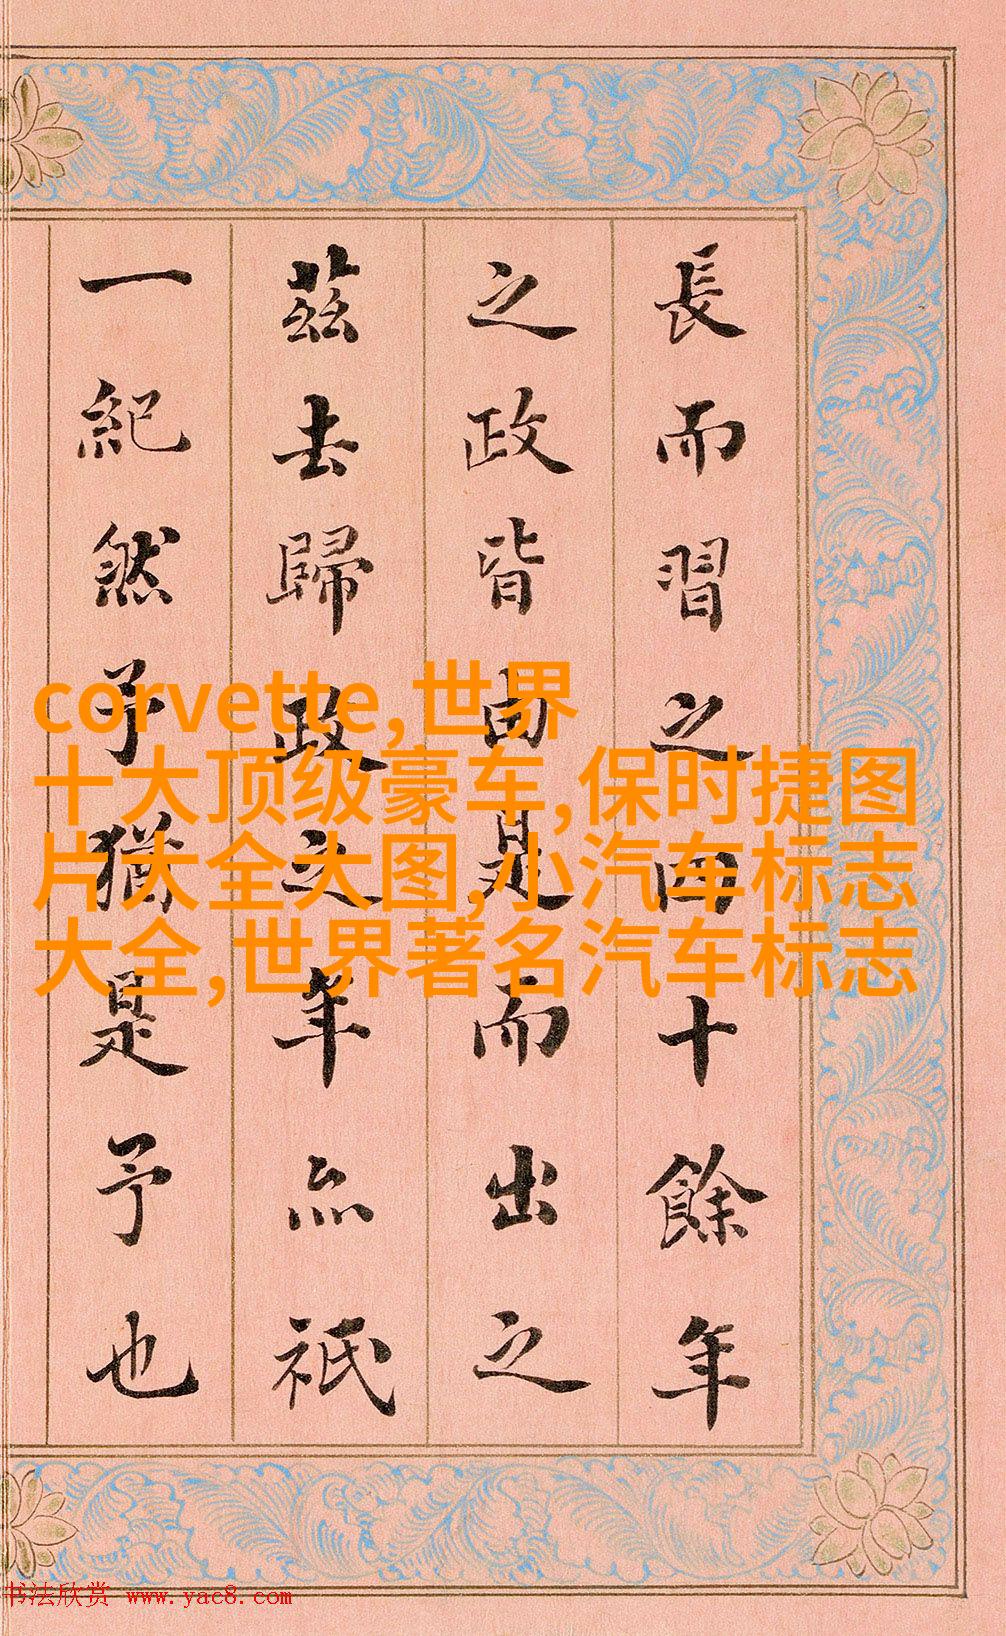 長而習之四十餘年
之政皆由是而出之
茲去歸政之年亦祇
一紀然予猶是予也
corvette,世界
十大顶级豪车,保时捷图
片大全大图,小汽车标志
大全,世界著名汽车标志
书法欣赏 www.yac8.com